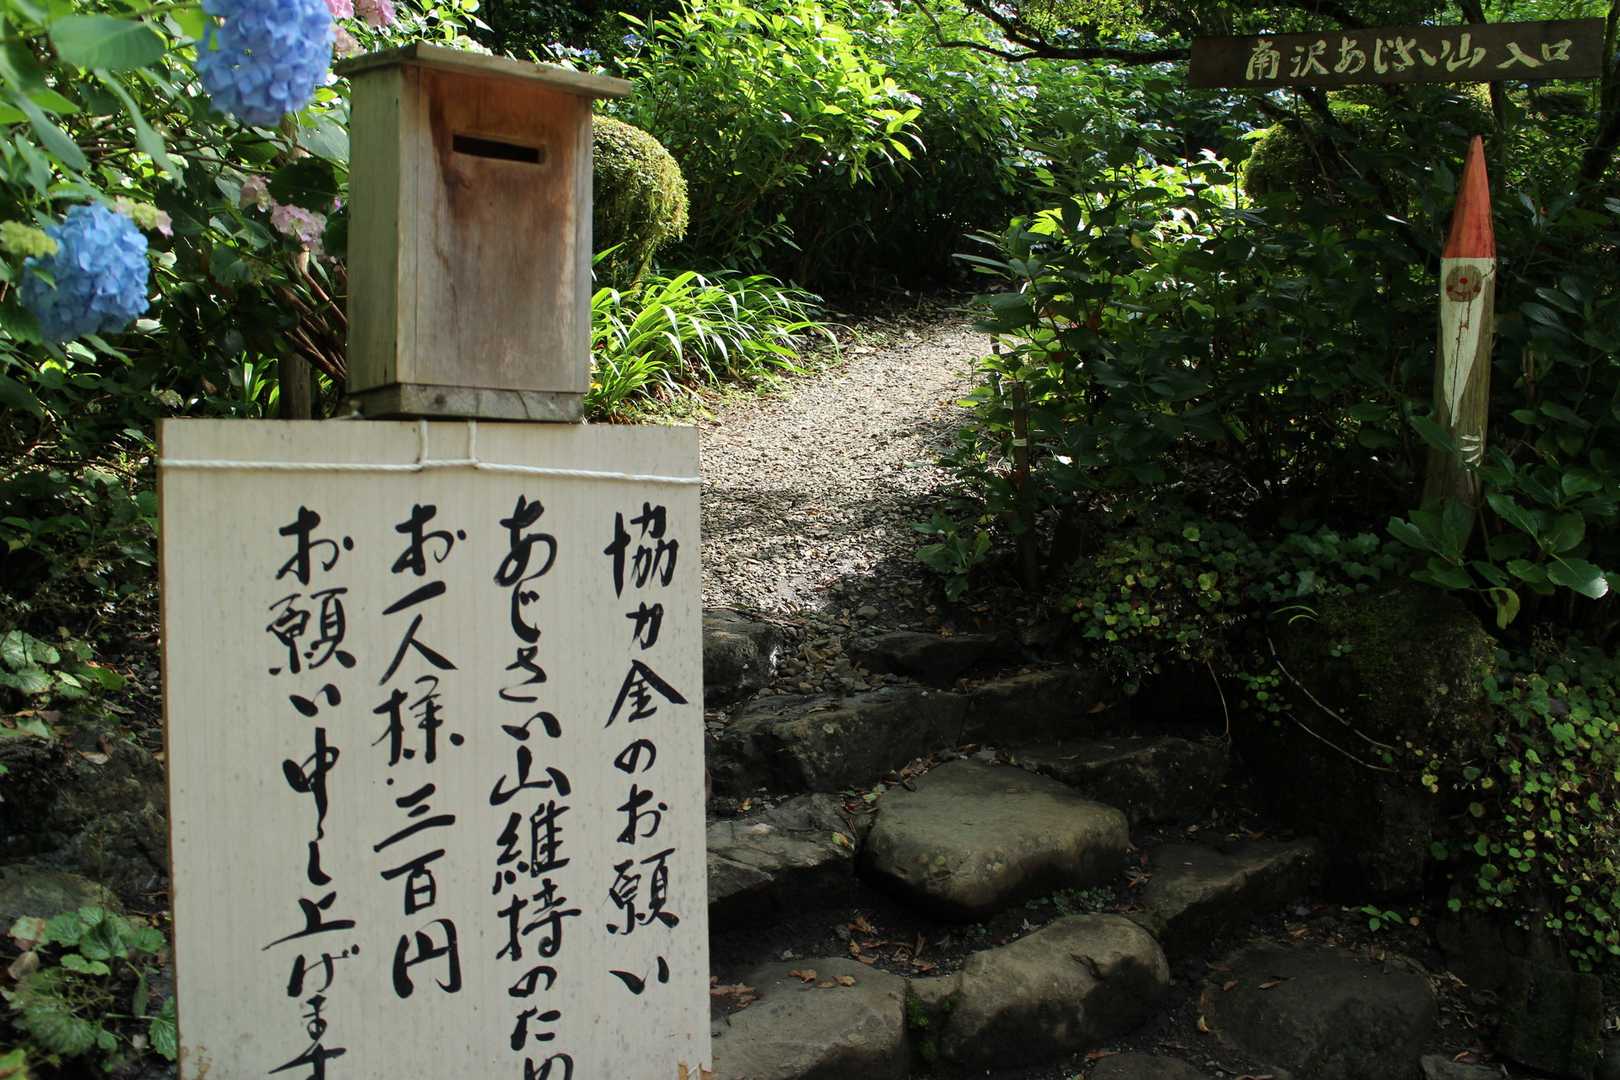 南沢あじさい山 入口
協力金のお願い
あじさい山維持のため
お一人様 三百円
お願い申し上げます